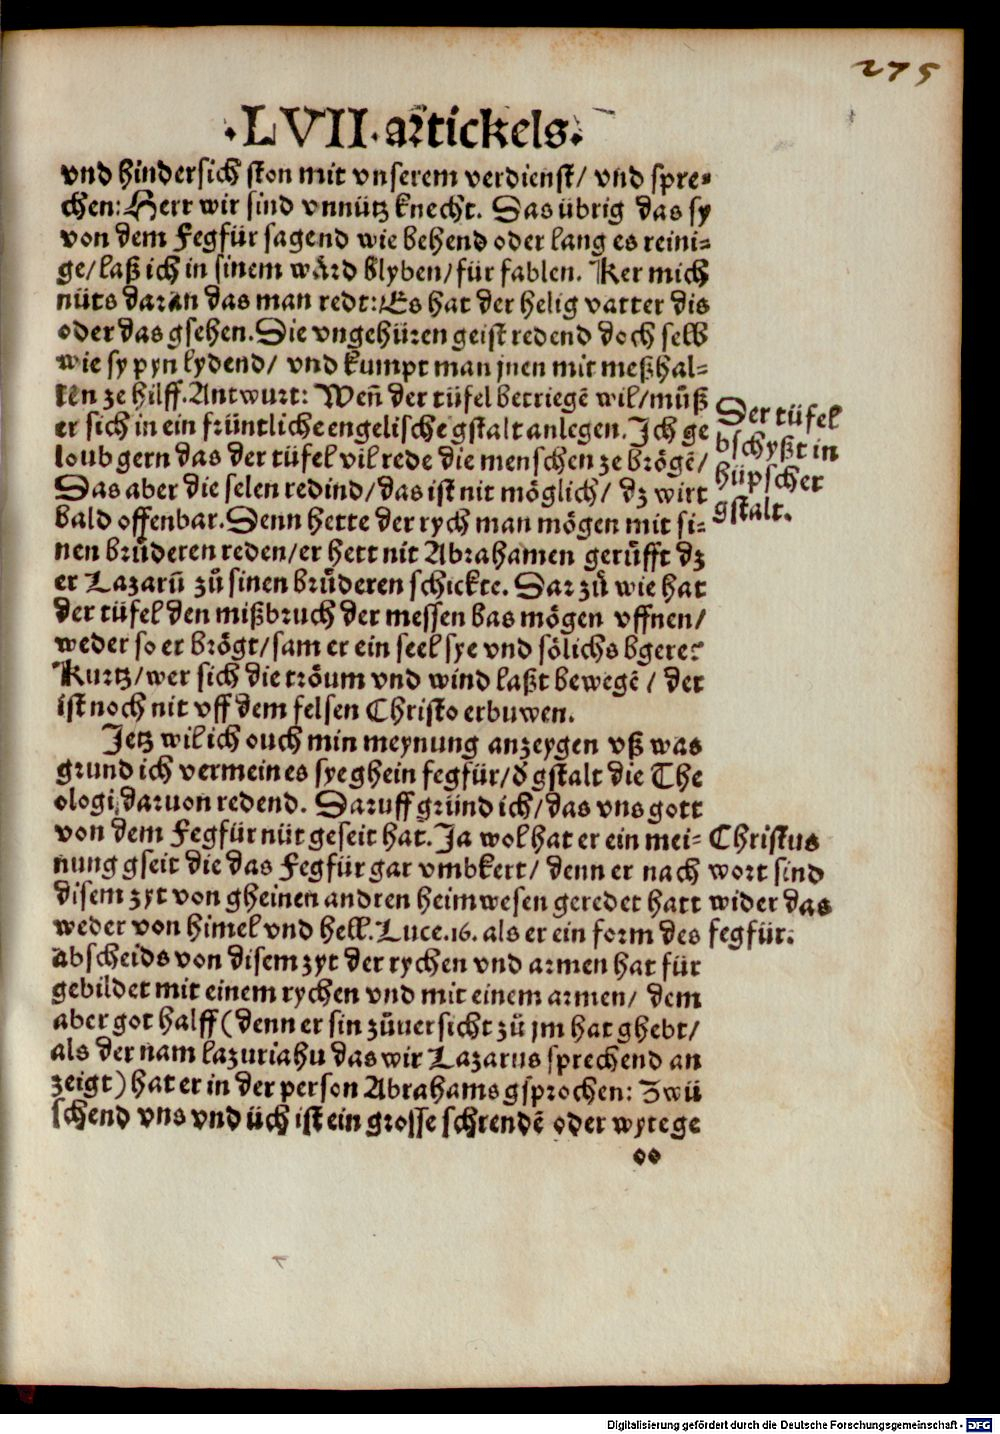 275
·LVII·artickels.
vnd hindersich ston mit vnserem verdienst/ vnd spre⸗
chen: Herr wir sind vnnütz knecht. Das übrig das sy
von dem Fegfür sagend wie behend oder lang es reini⸗
ge/laß ich in sinem wärd blyben/für fablen. Ker mich
nüts daran das man redt: Es hat der helig vatter dis
oder das gsehen. Die vngehüren geist redend doch selb
wie sy pyn lydend/ vnd kumpt man jnen mit meßhal⸗
ten ze hilff. Antwurt: Weñ der tüfel betriegē wil/můß
er sich in ein früntliche engelische gstalt anlegen. Ich ge
loub gern das der tüfel vil rede die menschen ze brögē/
Das aber die selen redind/das ist nit möglich/ dz wirt
bald offenbar. Denn hette der rych man mögen mit si⸗
nen brůderen reden/er hett nit Abrahamen gerůfft dz
er Lazarū zů sinen brůderen schickte. Dar zů wie hat
der tüfel den mißbruch der messen bas mögen vffnen/
weder so er brögt/sam er ein seel sye vnd sölichs bgere?
Kurtz/wer sich die tröum vnd wind laßt bewegē / der
ist noch nit vff dem felsen Christo erbuwen.
Der tüfel
bschyßt in
hüpscher
gstalt.
Jetz wil ich ouch min meynung anzeygen vß was
grund ich vermein es sye ghein fegfür/d̕ gstalt die The
ologi daruon redend. Daruff gründ ich/das vns gott
von dem Fegfür nüt geseit hat. Ja wol hat er ein mei⸗
nung gseit die das Fegfür gar vmbkert/ denn er nach
disem zyt von gheinen andren heimwesen geredet hatt
weder von himel vnd hell. Luce.16. als er ein form des
abscheids von disem zyt der rychen vnd armen hat für
gebildet mit einem rychen vnd mit einem armen/ dem
aber got halff (denn er sin zůuersicht zů jm hat ghebt/
als der nam lazuriahu das wir Lazarus sprechend an
zeigt) hat er in der person Abrahams gsprochen: Zwü
schend vns vnd üch ist ein grosse schrendē oder wytege
Christus
wort sind
wider das
fegfür.
oo
Digitalisierung gefördert durch die Deutsche Forschungsgemeinschaft - DFG